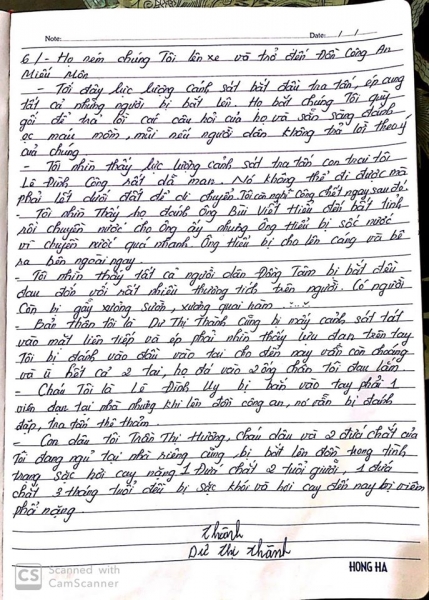 Note:
Date: / /
6/- Họ ném chúng Tôi lên xe và trở đến Đồn Công An
Miếu Môn
- Tới đây lực lượng Cảnh sát bắt đầu tra tấn, ép cung
tất cả những người bị bắt lên. Họ bắt chúng Tôi quỳ
gối để trả lời các câu hỏi của họ và sẵn sàng đánh
ọc máu mồm, mũi nếu người dân không trả lời theo ý
của chúng
- Tôi nhìn thấy lực lượng cảnh sát tra tấn con trai tôi
Lê Đình Công rất dã man. Nó không thể đi được mà
phải lết dưới đất để di chuyển. Tôi còn nghĩ Công chết ngay sau đó.
- Tôi nhìn Thấy họ đánh Ông Bùi Viết Hiểu đến bất tỉnh
rồi chuyền nước cho Ông ấy nhưng Ông Hiểu bị sốc nước
vì chuyền nước quá nhanh Ông Hiểu bị cho lên cáng và bê
ra bên ngoài ngay.
- Tôi nhìn thấy tất cả người dân Đồng Tâm bị bắt đều
đau đớn với rất nhiều thương tích trên người. Có người
Còn bị gẫy xương sườn, xương quai hàm ......
- Bản Thân tôi là Dư Thị Thành Cũng bị mấy cảnh sát tát
vào mặt liên tiếp và ép phải nhìn thấy lựu đạn trên tay
Tôi bị đánh vào đầu vào tai cho đến nay vẫn còn choáng
và ù hết cả 2 tai, họ đá vào 2 ống chân tôi đau lắm
- Cháu Tôi là Lê Đình Uy bị bắn vào tay phải 1
viên đạn tại nhà nhưng khi lên đồn công an, nó vẫn bị đánh
đập, tra tấn thê thảm.
- Con dâu tôi Trần Thị Hường, cháu dâu và 2 đứa chắt của
Tôi đang ngủ tại nhà riêng cũng bị bắt lên đồn trong tình
trạng sặc hơi cay nặng 1 Đứa chắt 2 tuổi rưỡi, 1 đứa
chắt 3 tháng tuổi đều bị sặc khói và hơi cay đến nay bị viêm
phổi nặng
Thành
Dư Thị Thành
HONG HA
CS Scanned with
CamScanner